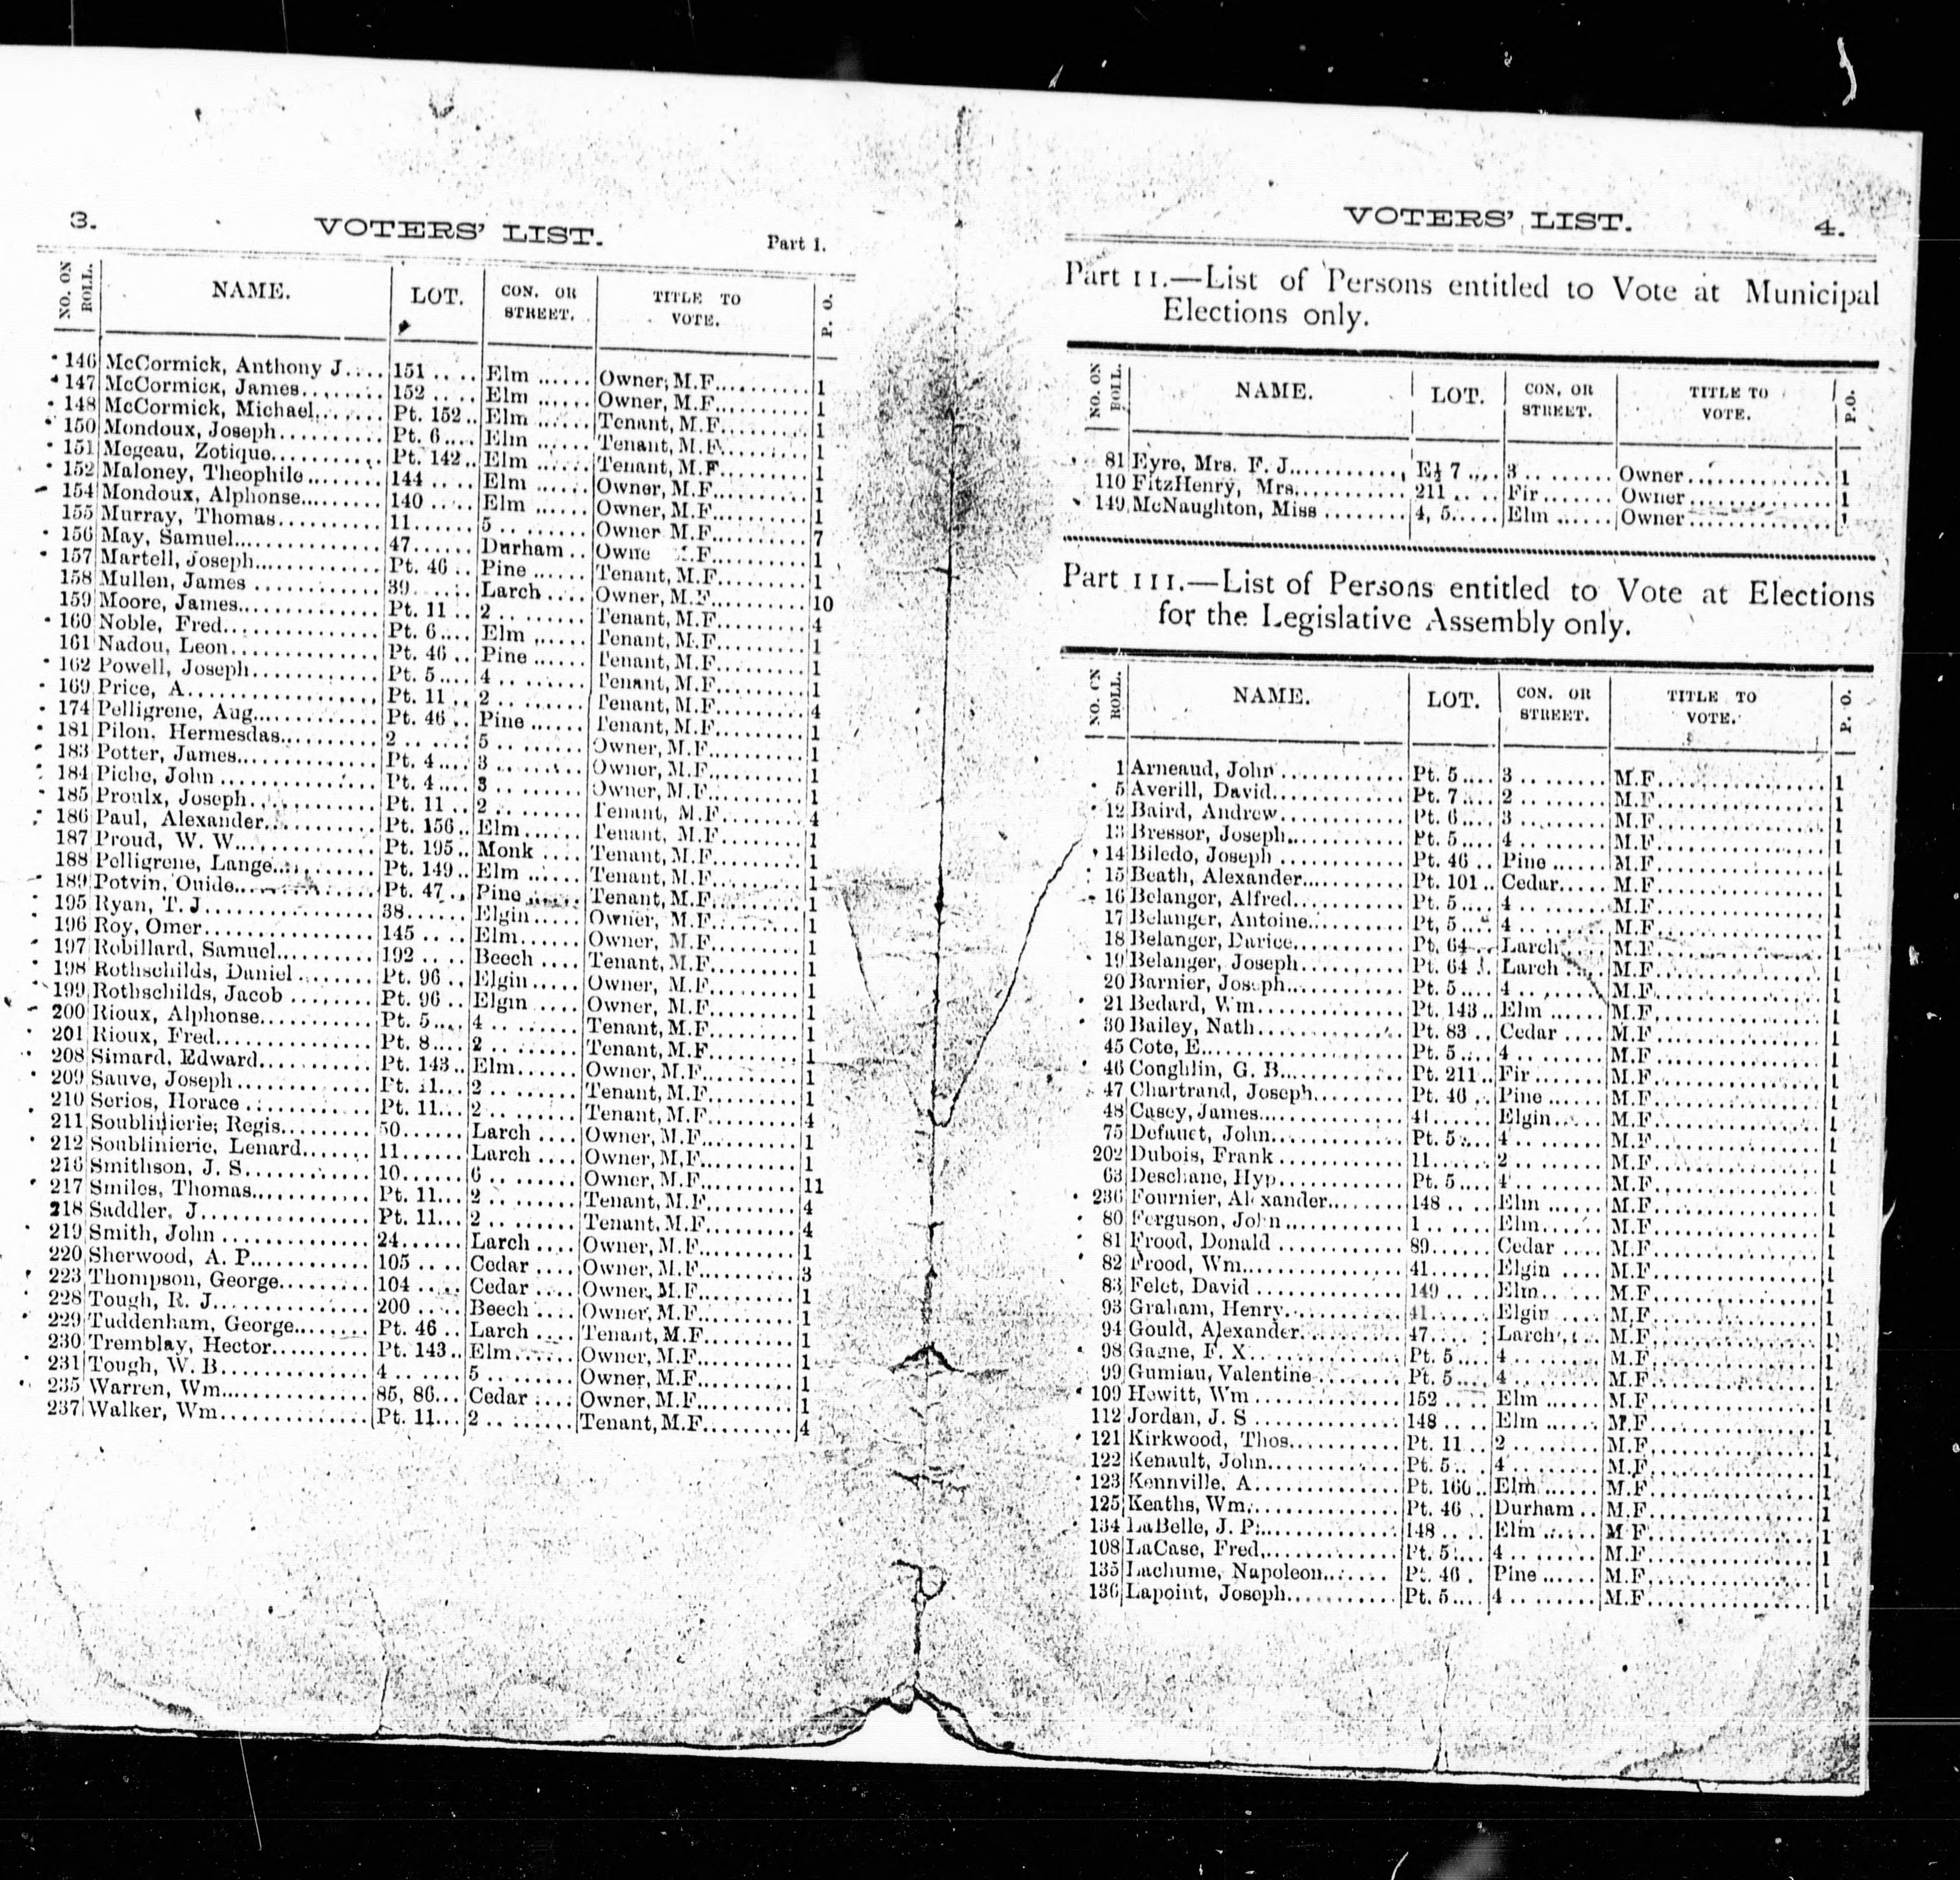 3. VOTERS' LIST. Part 1.
NO. ON ROLL. NAME. LOT. CON. OR STREET. TITLE TO VOTE. P. O.
146 McCormick, Anthony J.... 151 .... Elm ...... Owner, M.F.......... 1
147 McCormick, James........ 152 .... Elm ...... Owner, M.F.......... 1
148 McCormick, Michael....... Pt. 152.. Elm ...... Tenant, M.F......... 1
150 Mondoux, Joseph.......... Pt. 6.... Elm ...... Tenant, M.F......... 1
151 Megeau, Zotique.......... Pt. 142.. Elm ...... Tenant, M.F......... 1
152 Maloney, Theophile....... 144 .... Elm ...... Owner, M.F.......... 1
154 Mondoux, Alphonse........ 140 .... Elm ...... Owner, M.F.......... 1
155 Murray, Thomas........... 11...... 5 .. ....... Owner M.F.......... 7
156 May, Samuel.............. 47...... Durham .. Owne M.F.......... 1
157 Martell, Joseph.......... Pt. 46 .. Pine ...... Tenant, M.F......... 1
158 Mullen, James ........... 39...... Larch .... Owner, M.F.......... 10
159 Moore, James............. Pt. 11 .. 2 .. ....... Tenant, M.F......... 4
160 Noble, Fred.............. Pt. 6.... Elm ...... Tenant, M.F......... 1
161 Nadou, Leon.............. Pt. 46 .. Pine ...... Tenant, M.F......... 1
162 Powell, Joseph........... Pt. 5.... 4 .. ....... Tenant, M.F......... 1
169 Price, A................. Pt. 11 .. 2 .. ....... Tenant, M.F......... 4
174 Pelligrene, Aug.......... Pt. 46 .. Pine ...... Tenant, M.F......... 1
181 Pilon, Hermesdas......... 2 ...... 5 .. ....... Owner, M.F.......... 1
183 Potter, James............ Pt. 4.... 3 .. ....... Owner, M.F.......... 1
184 Piche, John ............. Pt. 4.... 3 .. ....... Owner, M.F.......... 1
185 Proulx, Joseph........... Pt. 11 .. 2 .. ....... Tenant, M.F......... 4
186 Paul, Alexander.......... Pt. 156.. Elm ...... Tenant, M.F......... 1
187 Proud, W. W.............. Pt. 195.. Monk .... Tenant, M.F......... 1
188 Pelligrene, Lange........ Pt. 149.. Elm ...... Tenant, M.F......... 1
189 Potvin, Ouide............ Pt. 47 .. Pine ...... Tenant, M.F......... 1
195 Ryan, T. J............... 38...... Elgin .... Owner, M.F.......... 1
196 Roy, Omer................ 145 .... Elm...... Owner, M.F.......... 1
197 Robillard, Samuel........ 192 .... Beech .... Tenant, M.F......... 1
198 Rothschilds, Daniel ..... Pt. 96 .. Elgin .... Owner, M.F.......... 1
199 Rothschilds, Jacob ...... Pt. 96 .. Elgin .... Owner, M.F.......... 1
200 Rioux, Alphonse.......... Pt. 5.... 4 .. ....... Tenant, M.F......... 1
201 Rioux, Fred.............. Pt. 8.... 2 .. ....... Tenant, M.F......... 1
208 Simard, Edward........... Pt. 143.. Elm...... Owner, M.F.......... 1
209 Sauve, Joseph............ Pt. 11... 2 .. ....... Tenant, M.F......... 1
210 Serios, Horace .......... Pt. 11... 2 .. ....... Tenant, M.F......... 4
211 Soublinierie, Regis...... 50...... Larch .... Owner, M.F.......... 1
212 Soublinierie, Lenard..... 11...... Larch .... Owner, M.F.......... 1
216 Smithson, J. S........... 10...... 6 .. ....... Owner, M.F.......... 11
217 Smiles, Thomas........... Pt. 11... 2 .. ....... Tenant, M.F......... 4
218 Saddler, J............... Pt. 11... 2 .. ....... Tenant, M.F......... 4
219 Smith, John ............. 24...... Larch .... Owner, M.F.......... 1
220 Sherwood, A. P........... 105 .... Cedar .... Owner, M.F.......... 3
223 Thompson, George......... 104 .... Cedar .... Owner, M.F.......... 1
228 Tough, R. J.............. 200 .... Beech .... Owner, M.F.......... 1
229 Tuddenham, George........ Pt. 46 .. Larch .... Tenant, M.F......... 1
230 Tremblay, Hector......... Pt. 143.. Elm...... Owner, M.F.......... 1
231 Tough, W. B.............. 4 ...... 5 .. ....... Owner, M.F.......... 1
235 Warren, Wm............... 85, 86... Cedar .... Owner, M.F.......... 1
237 Walker, Wm............... Pt. 11... 2 .. ....... Tenant, M.F......... 4
VOTERS' LIST. 4.
Part II.—List of Persons entitled to Vote at Municipal
Elections only.
NO. ON ROLL. NAME. LOT. CON. OR STREET. TITLE TO VOTE. P.O.
81 Eyre, Mrs. F. J.......... E½ 7 .... 3 .. ....... Owner............... 1
110 FitzHenry, Mrs.......... 211 .... Fir....... Owner............... 1
149 McNaughton, Miss ....... 4, 5..... Elm ...... Owner............... 1
Part III.—List of Persons entitled to Vote at Elections
for the Legislative Assembly only.
NO. ON ROLL. NAME. LOT. CON. OR STREET. TITLE TO VOTE. P. O.
1 Arneaud, John ........... Pt. 5.... 3 .. ....... M.F................ 1
5 Averill, David........... Pt. 7.... 2 .. ....... M.F................ 1
12 Baird, Andrew........... Pt. 6.... 3 .. ....... M.F................ 1
13 Bressor, Joseph......... Pt. 5.... 4 .. ....... M.F................ 1
14 Biledo, Joseph ......... Pt. 46 .. Pine ..... M.F................ 1
15 Beath, Alexander........ Pt. 101.. Cedar..... M.F................ 1
16 Belanger, Alfred........ Pt. 5.... 4 .. ....... M.F................ 1
17 Belanger, Antoine....... Pt, 5.... 4 .. ....... M.F................ 1
18 Belanger, Darice........ Pt. 64 .. Larch .... M.F................ 1
19 Belanger, Joseph........ Pt. 64 .. Larch .... M.F................ 1
20 Barnier, Joseph......... Pt. 5.... 4 .. ....... M.F................ 1
21 Bedard, Wm.............. Pt. 143.. Elm ...... M.F................ 1
30 Bailey, Nath............ Pt. 83 .. Cedar .... M.F................ 1
45 Cote, E................. Pt. 5.... 4 .. ....... M.F................ 1
46 Conghlin, G. B.......... Pt. 211.. Fir....... M.F................ 1
47 Chartrand, Joseph....... Pt. 46 .. Pine ..... M.F................ 1
48 Casey, James............ 41...... Elgin.... M.F................ 1
75 Defauct, John........... Pt. 5.... 4 .. ....... M.F................ 1
202 Dubois, Frank .......... 11...... 2 .. ....... M.F................ 1
63 Deschane, Hyp........... Pt. 5.... 4 .. ....... M.F................ 1
236 Fournier, Alexander..... 148 .... Elm ...... M.F................ 1
80 Ferguson, John .......... 1 ...... Elm...... M.F................ 1
81 Frood, Donald ........... 89...... Cedar .... M.F................ 1
82 Frood, Wm............... 41...... Elgin .... M.F................ 1
83 Felet, David ............ 149 .... Elm...... M.F................ 1
93 Graham, Henry........... 41...... Elgin .... M.F................ 1
94 Gould, Alexander........ 47...... Larch.... M.F................ 1
98 Gagne, F. X............. Pt. 5.... 4 .. ....... M.F................ 1
99 Gumiau, Valentine ....... Pt. 5.... 4 .. ....... M.F................ 1
109 Hewitt, Wm ............. 152 .... Elm ...... M.F................ 1
112 Jordan, J. S ........... 148 .... Elm ...... M.F................ 1
121 Kirkwood, Thos.......... Pt. 11 ... 2 .. ....... M.F................ 1
122 Kenault, John........... Pt. 5.... 4 .. ....... M.F................ 1
123 Kennville, A............ Pt. 160.. Elm ...... M.F................ 1
125 Keaths, Wm.............. Pt. 46 .. Durham .. M.F................ 1
134 LaBelle, J. P........... 148 .... Elm ...... M F................ 1
108 LaCase, Fred............ Pt. 5.... 4 .. ....... M.F................ 1
135 Lachume, Napoleon....... Pt. 46 . Pine ..... M.F................ 1
136 Lapoint, Joseph......... Pt. 5.... 4 .. ....... M.F................ 1